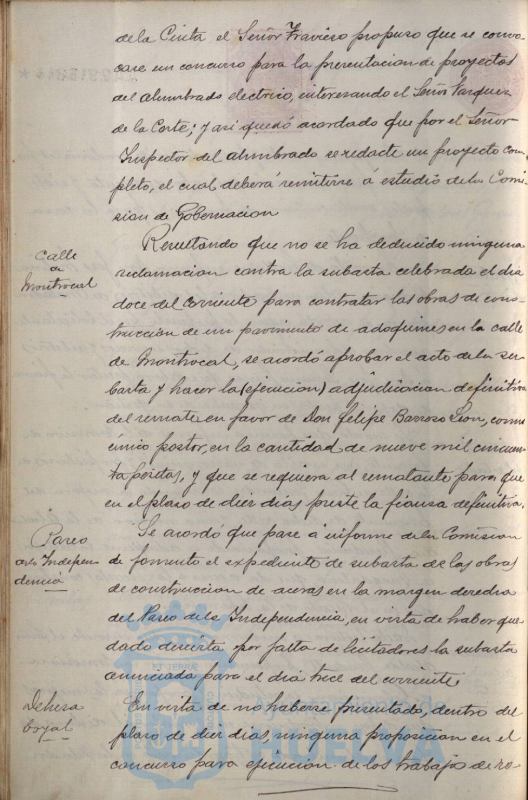 de la Cinta el Señor Travieso propuso que se convo-
case un concurso para la presentacion de proyectos
del alumbrado electrico, interesando el Señor Vazquez
de la Corte; y asi quedó acordado que por el Señor
Inspector del alumbrado se redacte un proyecto com-
pleto, el cual deberá remitirse á estudio de la Comi-
sion de Gobernacion
Calle
de
Montrocal
Resultando que no se ha deducido ninguna
reclamacion contra la subasta celebrada el dia
doce del corriente para contratar las obras de cons-
truccion de un pavimento de adoquines en la calle
de Montrocal, se acordó aprobar el acto de la su-
basta y hacer la (ejecucion) adjudicacion definitiva
del remate en favor de Don Felipe Barroso Leon, como
único postor, en la cantidad de nueve mil cincuen-
ta pesetas, y que se requiera al rematante para que
en el plazo de diez dias preste la fianza definitiva.
Paseo
de la Indepen
dencia
Se acordó que pase á informe de la Comision
de fomento el expediente de subasta de las obras
de construccion de aceras en la margen derecha
del Paseo de la Independencia, en vista de haber que
dado desierta por falta de licitadores la subasta
anunciada para el dia trece del corriente
Dehesa
boyal
En vista de no haberse presentado, dentro del
plazo de diez dias, ninguna proposicion en el
concurso para ejecucion de los trabajos de ro-
HUELVA